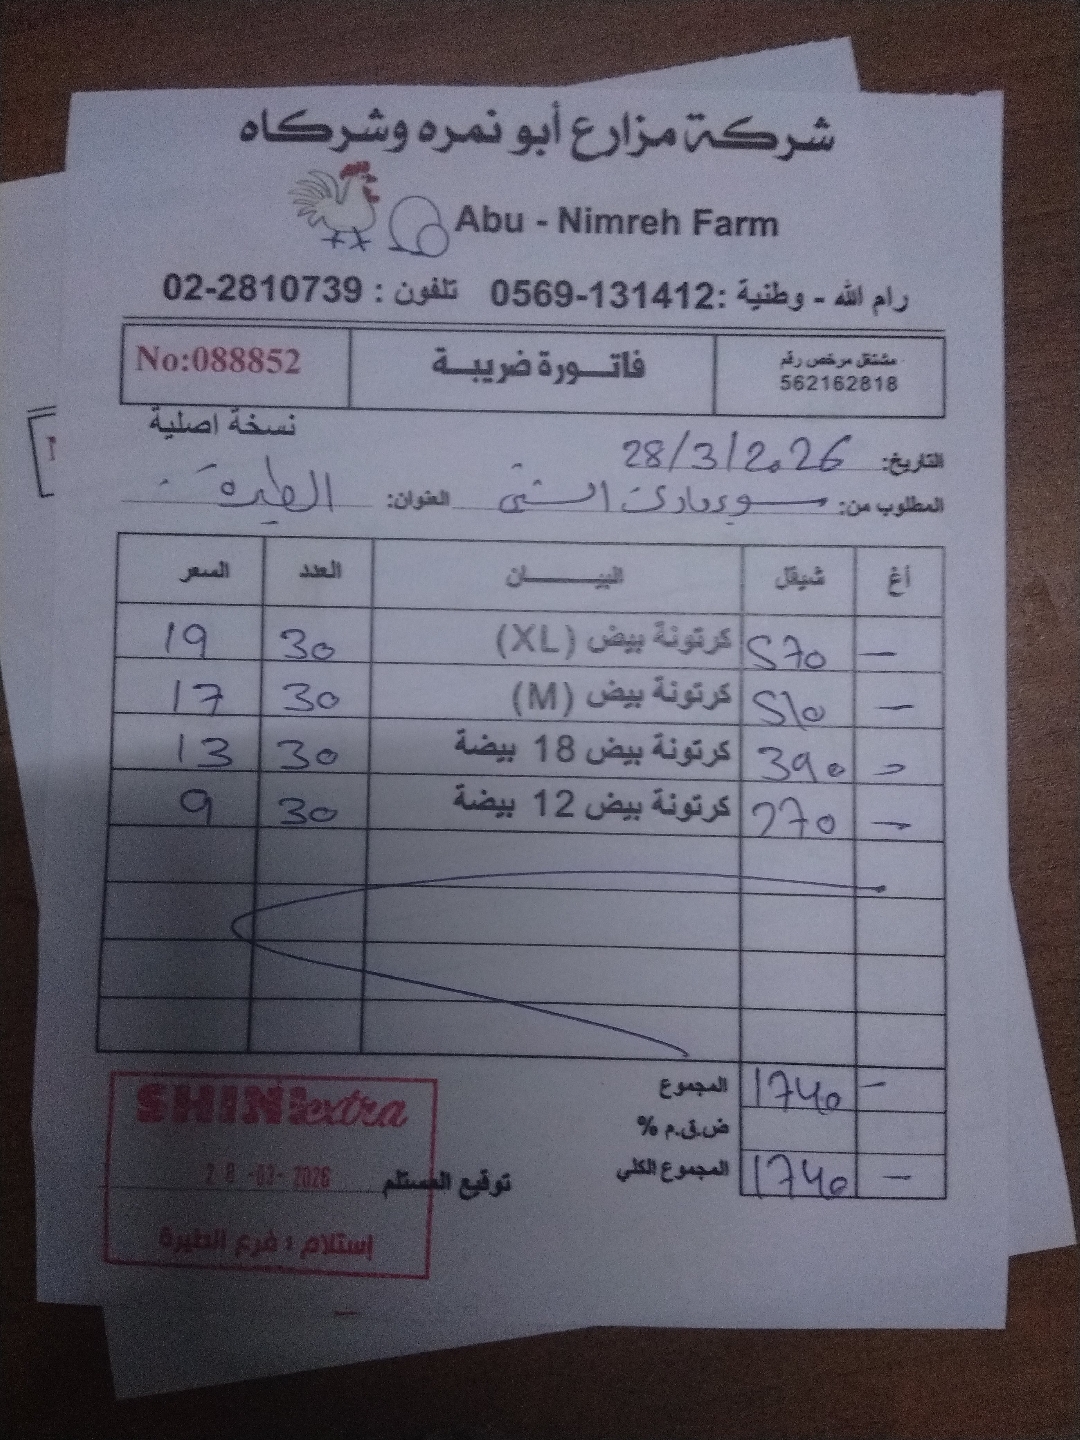 شركة مزارع أبو نمره وشركاه
Abu - Nimreh Farm
رام الله - وطنية :0569-131412 تلفون : 02-2810739
مشتغل مرخص رقم
562162818
فاتورة ضريبة
No:088852
نسخة اصلية
التاريخ: 28/3/2026
المطلوب من: العنوان: الطيره
أغ شيقل البيان العدد السعر
— 570 كرتونة بيض (XL) 30 19
— 510 كرتونة بيض (M) 30 17
— 390 كرتونة بيض 18 بيضة 30 13
— 270 كرتونة بيض 12 بيضة 30 9
المجموع 1740 —
ض.ق.م %
المجموع الكلي 1740 —
توقيع المستلم
SHINI extra
28-03-2026
إستلام : فرع الطيرة